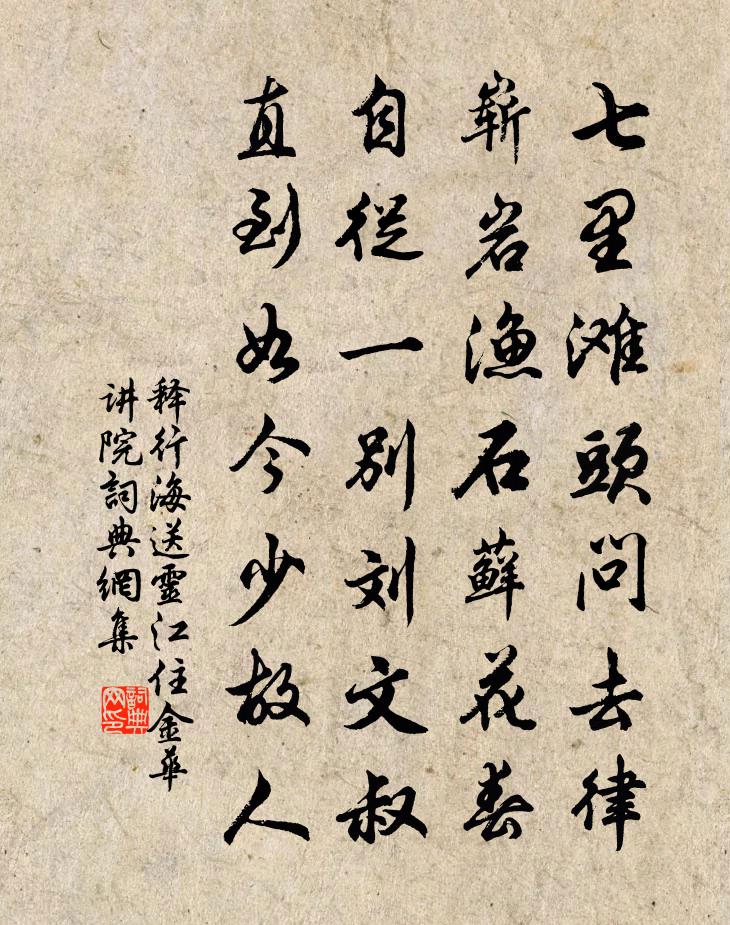 七里滩頭問去律
嶄岩漁石蘚花春
自從一别刘文叔
直到如今少故人
释行海送靈江住金華
讲院詞典網集
詞典网印